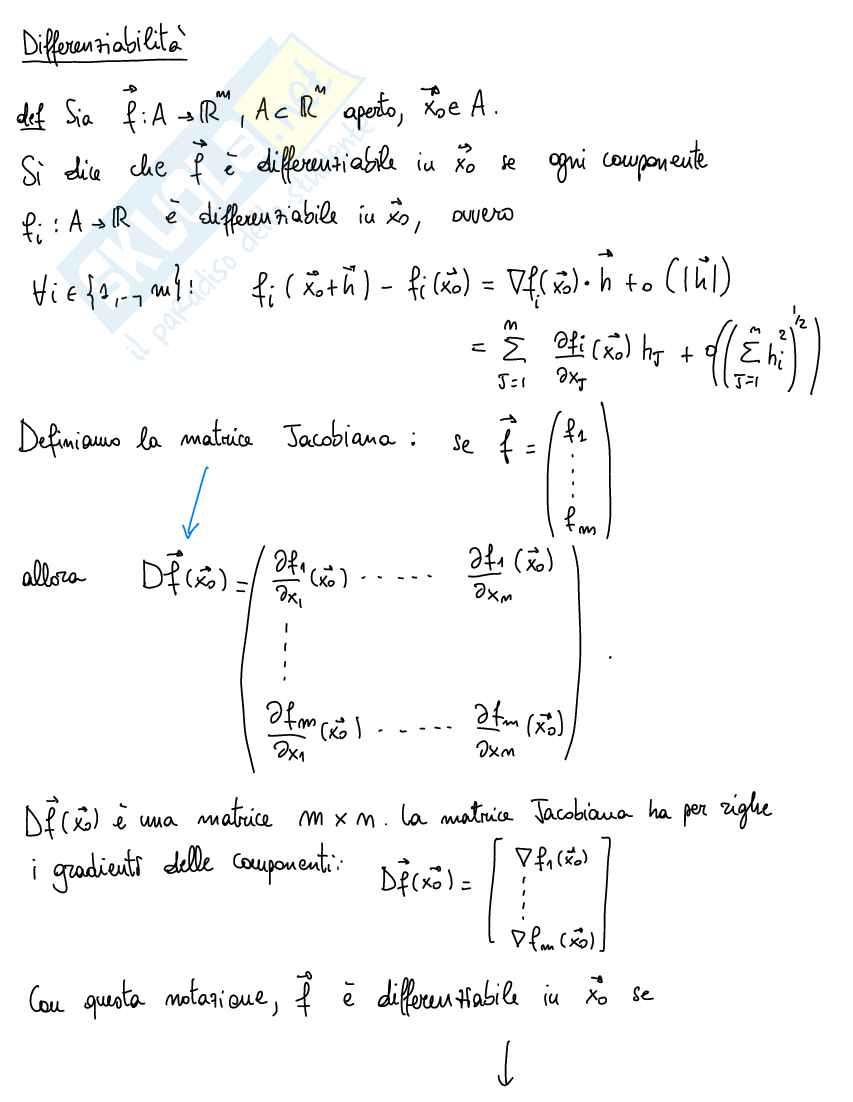 Differenziabilità
def Sia f⃗ : A → ℝᵐ, A ⊂ ℝⁿ aperto, x⃗₀ ∈ A.
Si dice che f⃗ è differenziabile in x⃗₀ se ogni componente
fᵢ : A → ℝ è differenziabile in x⃗₀, ovvero
∀i ∈ {1,..,m}: fᵢ(x⃗₀+h⃗) - fᵢ(x⃗₀) = ∇fᵢ(x⃗₀)·h⃗ + o(|h⃗|)
= ∑_{J=1}^{n} ∂fᵢ/∂x_J (x⃗₀) h_J + o((∑_{J=1}^{n} hᵢ²)^{1/2})
Definiamo la matrice Jacobiana : se f⃗ = (f₁ ⋮ fₘ)
allora Df⃗(x⃗₀) = ( ∂f₁/∂x₁ (x⃗₀) ..... ∂f₁/∂xₙ (x⃗₀)
⋮
∂fₘ/∂x₁ (x⃗₀) ..... ∂fₘ/∂xₙ (x⃗₀) ) .
Df⃗(x⃗₀) è una matrice m × n. La matrice Jacobiana ha per righe
i gradienti delle componenti: Df⃗(x⃗₀) = [∇f₁(x⃗₀) ⋮ ∇fₘ(x⃗₀)]
Con questa notazione, f⃗ è differenziabile in x⃗₀ se
↓
SKUOLA.net
il paradiso dello studente